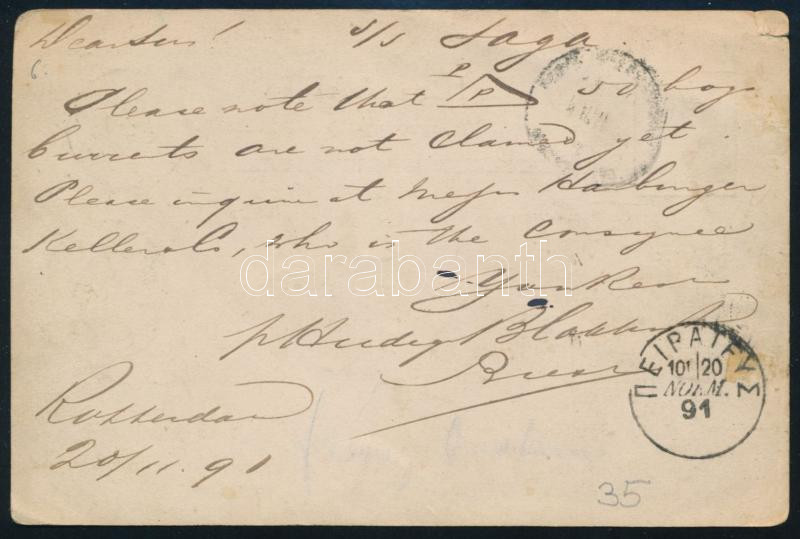 Dear Sirs! S/S Saga.
Please note that P/P 50 bags
Currents are not claimed yet.
Please inquire at Messrs Harburger
Keller & Co, who is the consignee
darabanth
Yours
p Hudig & Blokhuyzen
Rotterdam
20/11. 91
ΠΕΙΡΑΙΕΥΣ
10 20
ΝΟΕΜ.
91
35